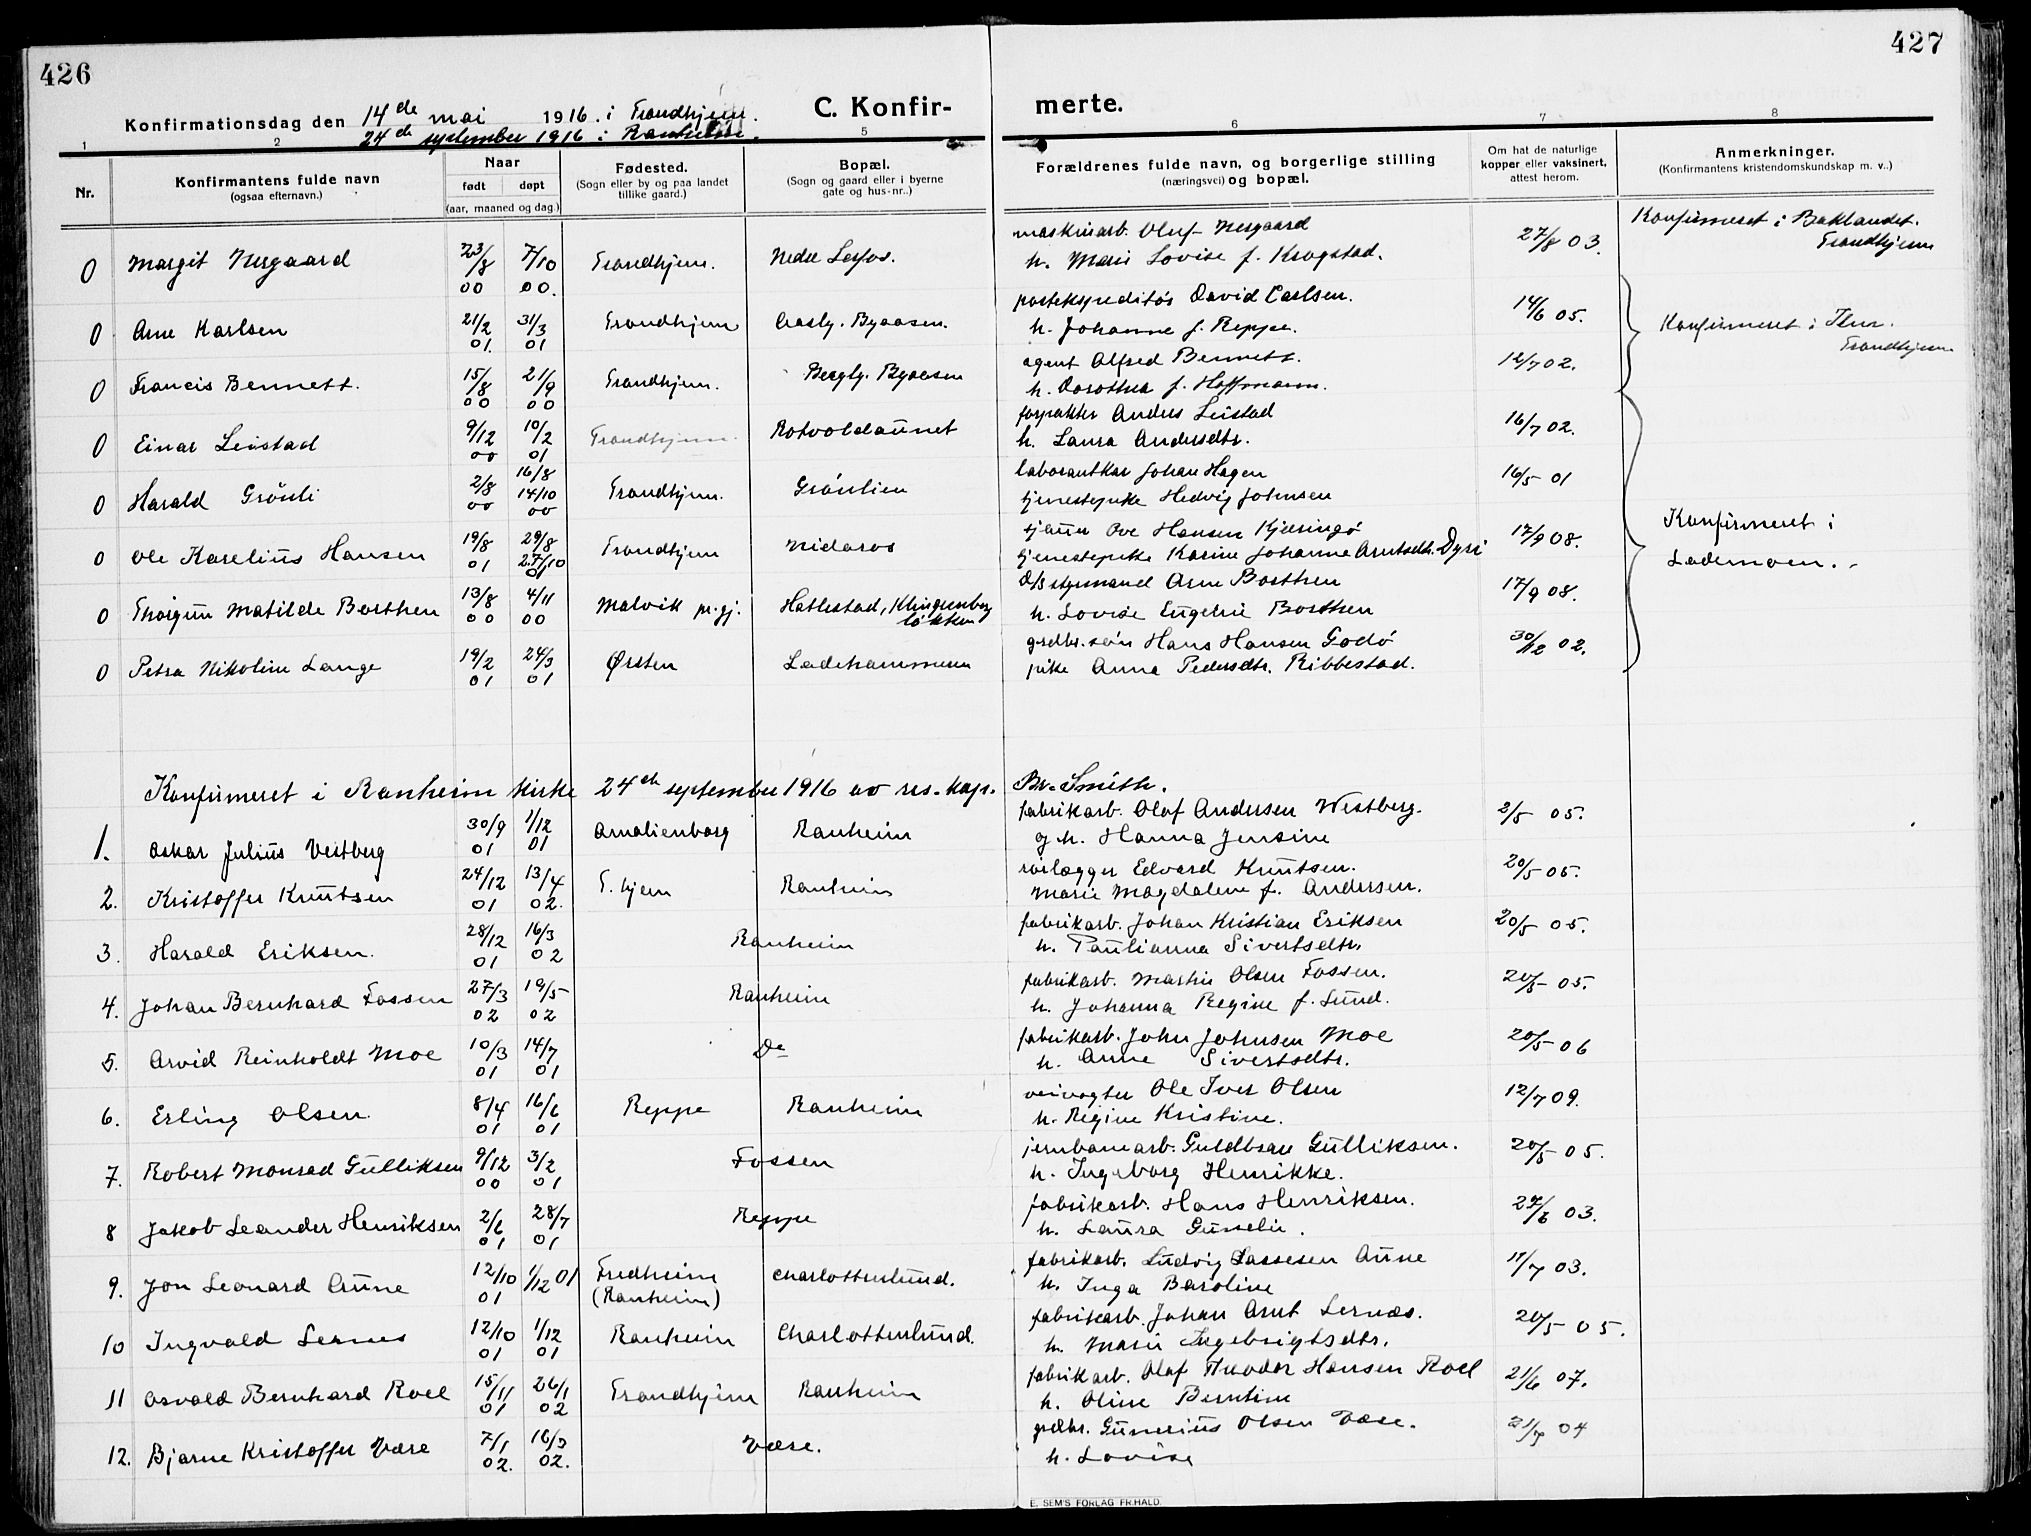 426
427
Konfirmationsdag den 14de mai 1916. i Trondhjem.
24de september 1916 i Ranheim.
C. Konfir-
merte.
1 2 5 6 7 8
Nr.
Konfirmantens fulde navn
(ogsaa efternavn.)
Naar
født døpt
(aar, maaned og dag.)
Fødested.
(Sogn eller by og paa landet
tillike gaard.)
Bopæl.
(Sogn og gaard eller i byerne
gate og hus-nr..)
Forældrenes fulde navn, og borgerlige stilling
(næringsvei) og bopæl.
Om hat de naturlige
kopper eller vaksinert,
attest herom.
Anmerkninger.
(Konfirmantens kristendomskundskap m. v..)
0 Margit Nesgaard 23/8 00 7/10 00. Trondhjem. Nedre Lerfos.
maskinarb. Oluf Nesgaard
h. Marie Lovise f. Krogstad.
27/8 03.
Konfirmeret i Baklandet.
Trondhjem
0 Arne Karlsen 21/2 01. 31/3 01 Trondhjem Byaasen.
postekspeditør David Carlsen.
h. Johanne f. Reppe.
14/6 05.
Konfirmeret i
Trondhjem
0 Francis Bennett. 15/8 00 21/9 00 Trondhjem. Byaasen
agent Alfred Bennett.
h. Dorothea f. Hoffmann.
12/7 02.
0 Einar Leistad 9/12 00 10/2 01 Trondhjem. Rotvoldaunet
forpakter Anders Leistad
h. Laura Andersdtr.
16/7 02.
0 Harald Grønli 2/8 00 16/8 14/10 00 Trondhjem. Grønlien
laborantkar Johan Hagen
tjenestepike Hedvig Johnsen
16/5 01
0 Ole Karelius Hansen 19/8 01 29/8 27/10 01 Trondhjem Nidaros
sjauer Ove Hansen Kjæringø
tjenestepike Karine Johanne Arntsdtr. Dyri
17/9 08.
Konfirmeret i
Lademoen.
0 Thorgun Matilde Borthen 13/8 00 4/11 00 Malvik pr.gj. Hallestad, Klingenberg
løkken
D/S styrmand Arne Borthen
h. Lovise Eugenie Borthen
17/9 08.
0 Petra Nikoline Lange 19/2 01 24/3 01 Ørsten Ladehammeren
grdbr.søn Hans Hansen Godø
pike Anna Pedersdtr. Ribbestad.
30/12 02.
Konfirmeret i Ranheim kirke 24de september 1916 av res. kap. Br. Smith.
1. Oskar Julius Vestberg 30/9 01 1/12 01 Amalienborg Ranheim
fabrikarb. Olaf Andersen Westberg.
og h. Hanna Jensine
2/5 05.
2. Kristoffer Knutsen 24/12 01 13/4 02. T.hjem Ranheim
rørlægger Edvard Knutsen.
Marie Magdalene f. Andersen.
20/5 05.
3. Harald Eriksen. 28/12 01 16/3 02 Ranheim
fabrikarb. Johan Kristian Eriksen
h. Paulianna Sivertsdtr.
20/5 05.
4. Johan Bernhard Fossen 27/3 02 19/5 02 Ranheim
fabrikarb. Martin Olsen Fossen.
h. Johanna Regine f. Lund.
20/5 05.
5. Arvid Reinholdt Moe 10/3 01 14/7 01 Do
fabrikarb. John Johnsen Moe
h. Anne Sivertsdtr.
20/5 06
6. Erling Olsen 8/4 01 16/6 01 Reppe Ranheim
veivogter Ole Iver Olsen
h. Regine Kristine.
12/7 09.
7. Robert Monrad Gulliksen 9/12 00 3/2 01 Fossen
jernbanearb. Guldbran Gulliksen.
h. Ingeborg Henrikke.
20/5 05.
8 Jakob Leander Henriksen 2/6 01 28/7 01 Reppe
fabrikarb. Hans Henriksen.
h. Laura Gunelie.
27/6 03.
9. Jon Leonard Aune 12/10 01 1/12 01 Fredheim
(Ranheim) Charlottenlund.
fabrikarb. Ludvig Lassesen Aune
h. Inga Baroline
11/7 03.
10 Ingvald Lernes 12/10 01 1/12 01 Ranheim Charlottenlund.
fabrikarb. Johan Arnt Lernæs.
h. Marie Ingebrigtsdtr.
20/5 05.
11 Osvald Bernhard Roel 15/11 01 26/1 02 Trondhjem Ranheim
fabrikarb. Olaf Theodor Hansen Roel
h. Oline Berntine
21/6 07.
12. Bjarne Kristoffer Være 7/1 02. 16/3 02. Være.
grdbr. Gunerius Olsen Være.
h. Lovise
21/9 04
E. SEM'S FORLAG FR.HALD.